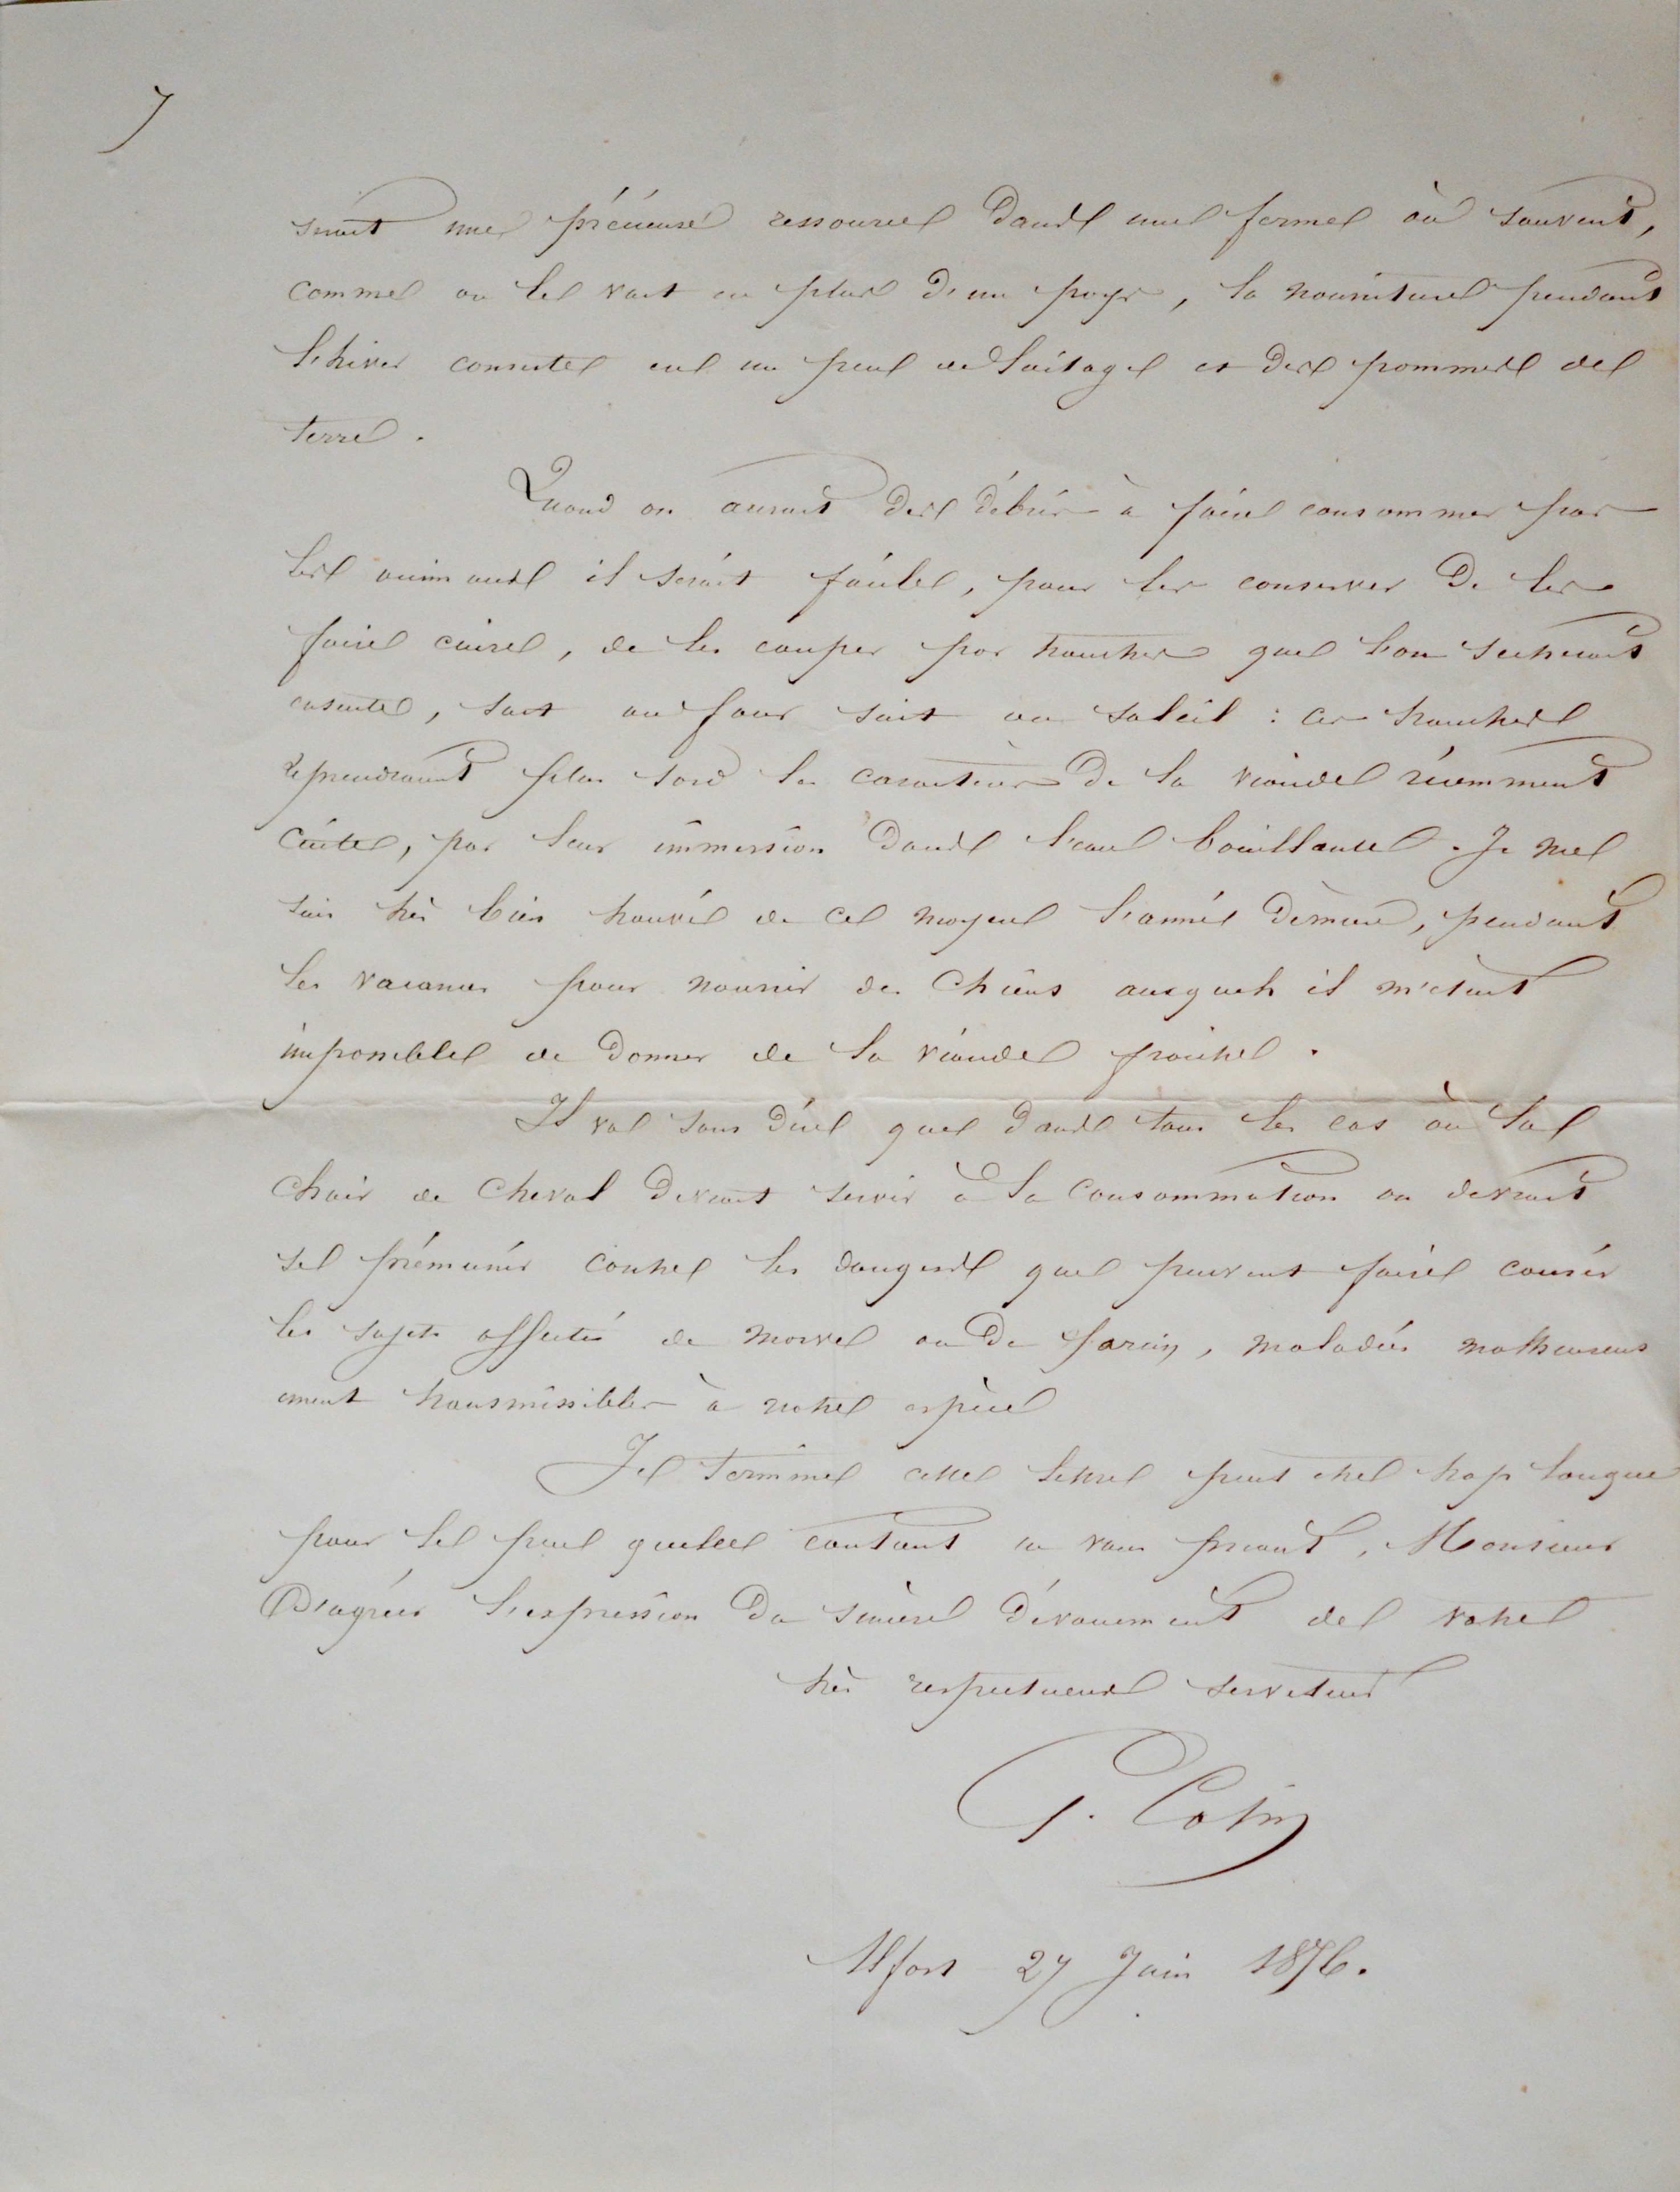 7
serait une précieuse ressource dans une ferme où souvent,
comme on le voit en plus d'un pays, la nourriture pendant
l'hiver consiste en un peu de laitage et des pommes de
terre.
Quand on aurait des débris à faire consommer par
les animaux il serait facile, pour les conserver de les
faire cuire, de les couper par tranches que l'on secherait
ensuite, soit au four soit au soleil : ces tranches
reprendraient plus tard les caracteres de la viande récemment
cuite, par leur immersion dans l'eau bouillante. Je me
suis très bien trouvé de ce moyen l'année dernière, pendant
les vacances pour nourrir des chiens auxquels il m'etait
impossible de donner de la viande fraiche.
Il va sans dire que dans tous les cas où la
chair de cheval devrait servir à la consommation on devrait
se prémunir contre les dangers que peuvent faire courir
les sujets affectés de morve ou de farcin, maladies malheureus
ement transmissibles à notre espèce
Je termine cette lettre peut etre trop longue
pour le peu qu'elle contient en vous priant, Monsieur
d'agréer l'expression du sincère dévouement de votre
très respectueux serviteur
G. Colin
Alfort 27 Juin 1856.